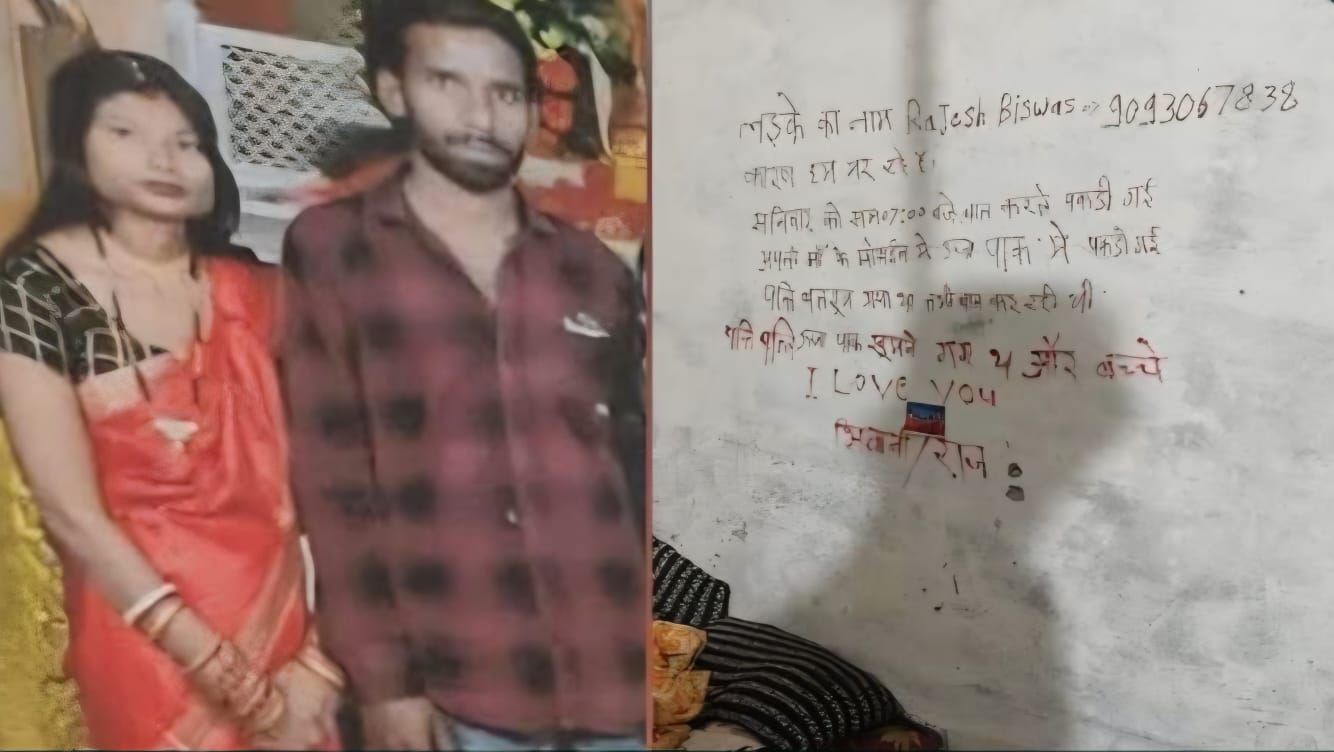 लड़के का नाम Rajesh Biswas => 9093067838
कारण हम मर रहे है।
सनिवार को साम 07:00 बजे बात करते पकडी गई
अपनी माँ के मोबाईल में पार्क में पकडी गई
पत्नि गया था तभी बात कर रही थी
पति पत्नि पार्क घूमने गए थे और बच्चे
I LOVE YOU
/राज